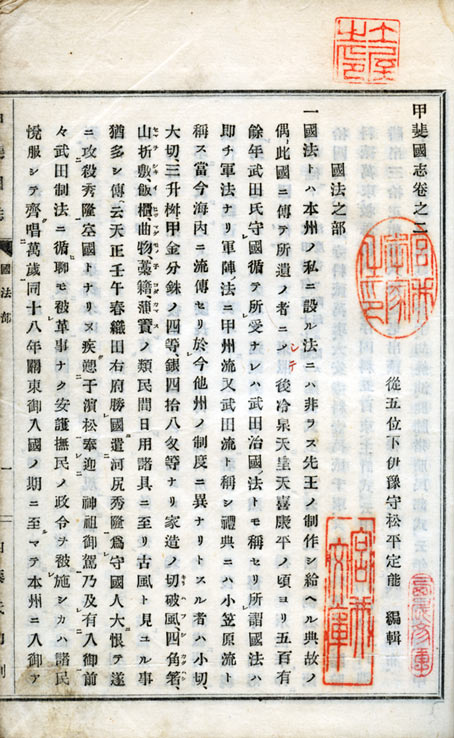 甲斐國志卷之二
從五位下伊豫守松平定能 編輯
國法之部
一國法ハ本州ノ私ニ設ル法ニハ非ラス先王ノ制作シ給ヘル典故ノ
偶〻此國ニ傳テ所遺ノ者ニシテ後冷泉天皇天喜康平ノ頃ヨリ五百有
餘年武田氏守國循テ所受ナレハ武田治國法トモ稱セリ所謂國法ハ
即チ軍法ナリ軍陣法ニ甲州流又武田流ト稱シ禮典ニハ小笠原流ト
稱ス當今海內ニ流傳セリ於今他州ノ制度ニ異ナリトスル者ハ小切、
大切、三升桝甲金分銖ノ四等、錢四拾八匁等ナリ家造ノ切破風、四角箸、
山折敷飯櫃曲物藁籍蒲簀ノ類民間日用諸具ニ至リ古風ト見ユル事
猶多シ傳ヘ云天正壬午春織田右府勝國遣河尻秀隆爲守國人大恨テ遂
ニ攻殺秀隆室國トナリヌ疾愬于濱松奉迎 神祖御駕乃及有入御前
々武田制法ニ循聊モ被革事ナク安護撫民ノ政令ヲ被施シカハ諸民
悅服シテ齊唱萬歲同十八年關東御入國ノ期ニ至マテ本州ニ入御ア
國法部
一